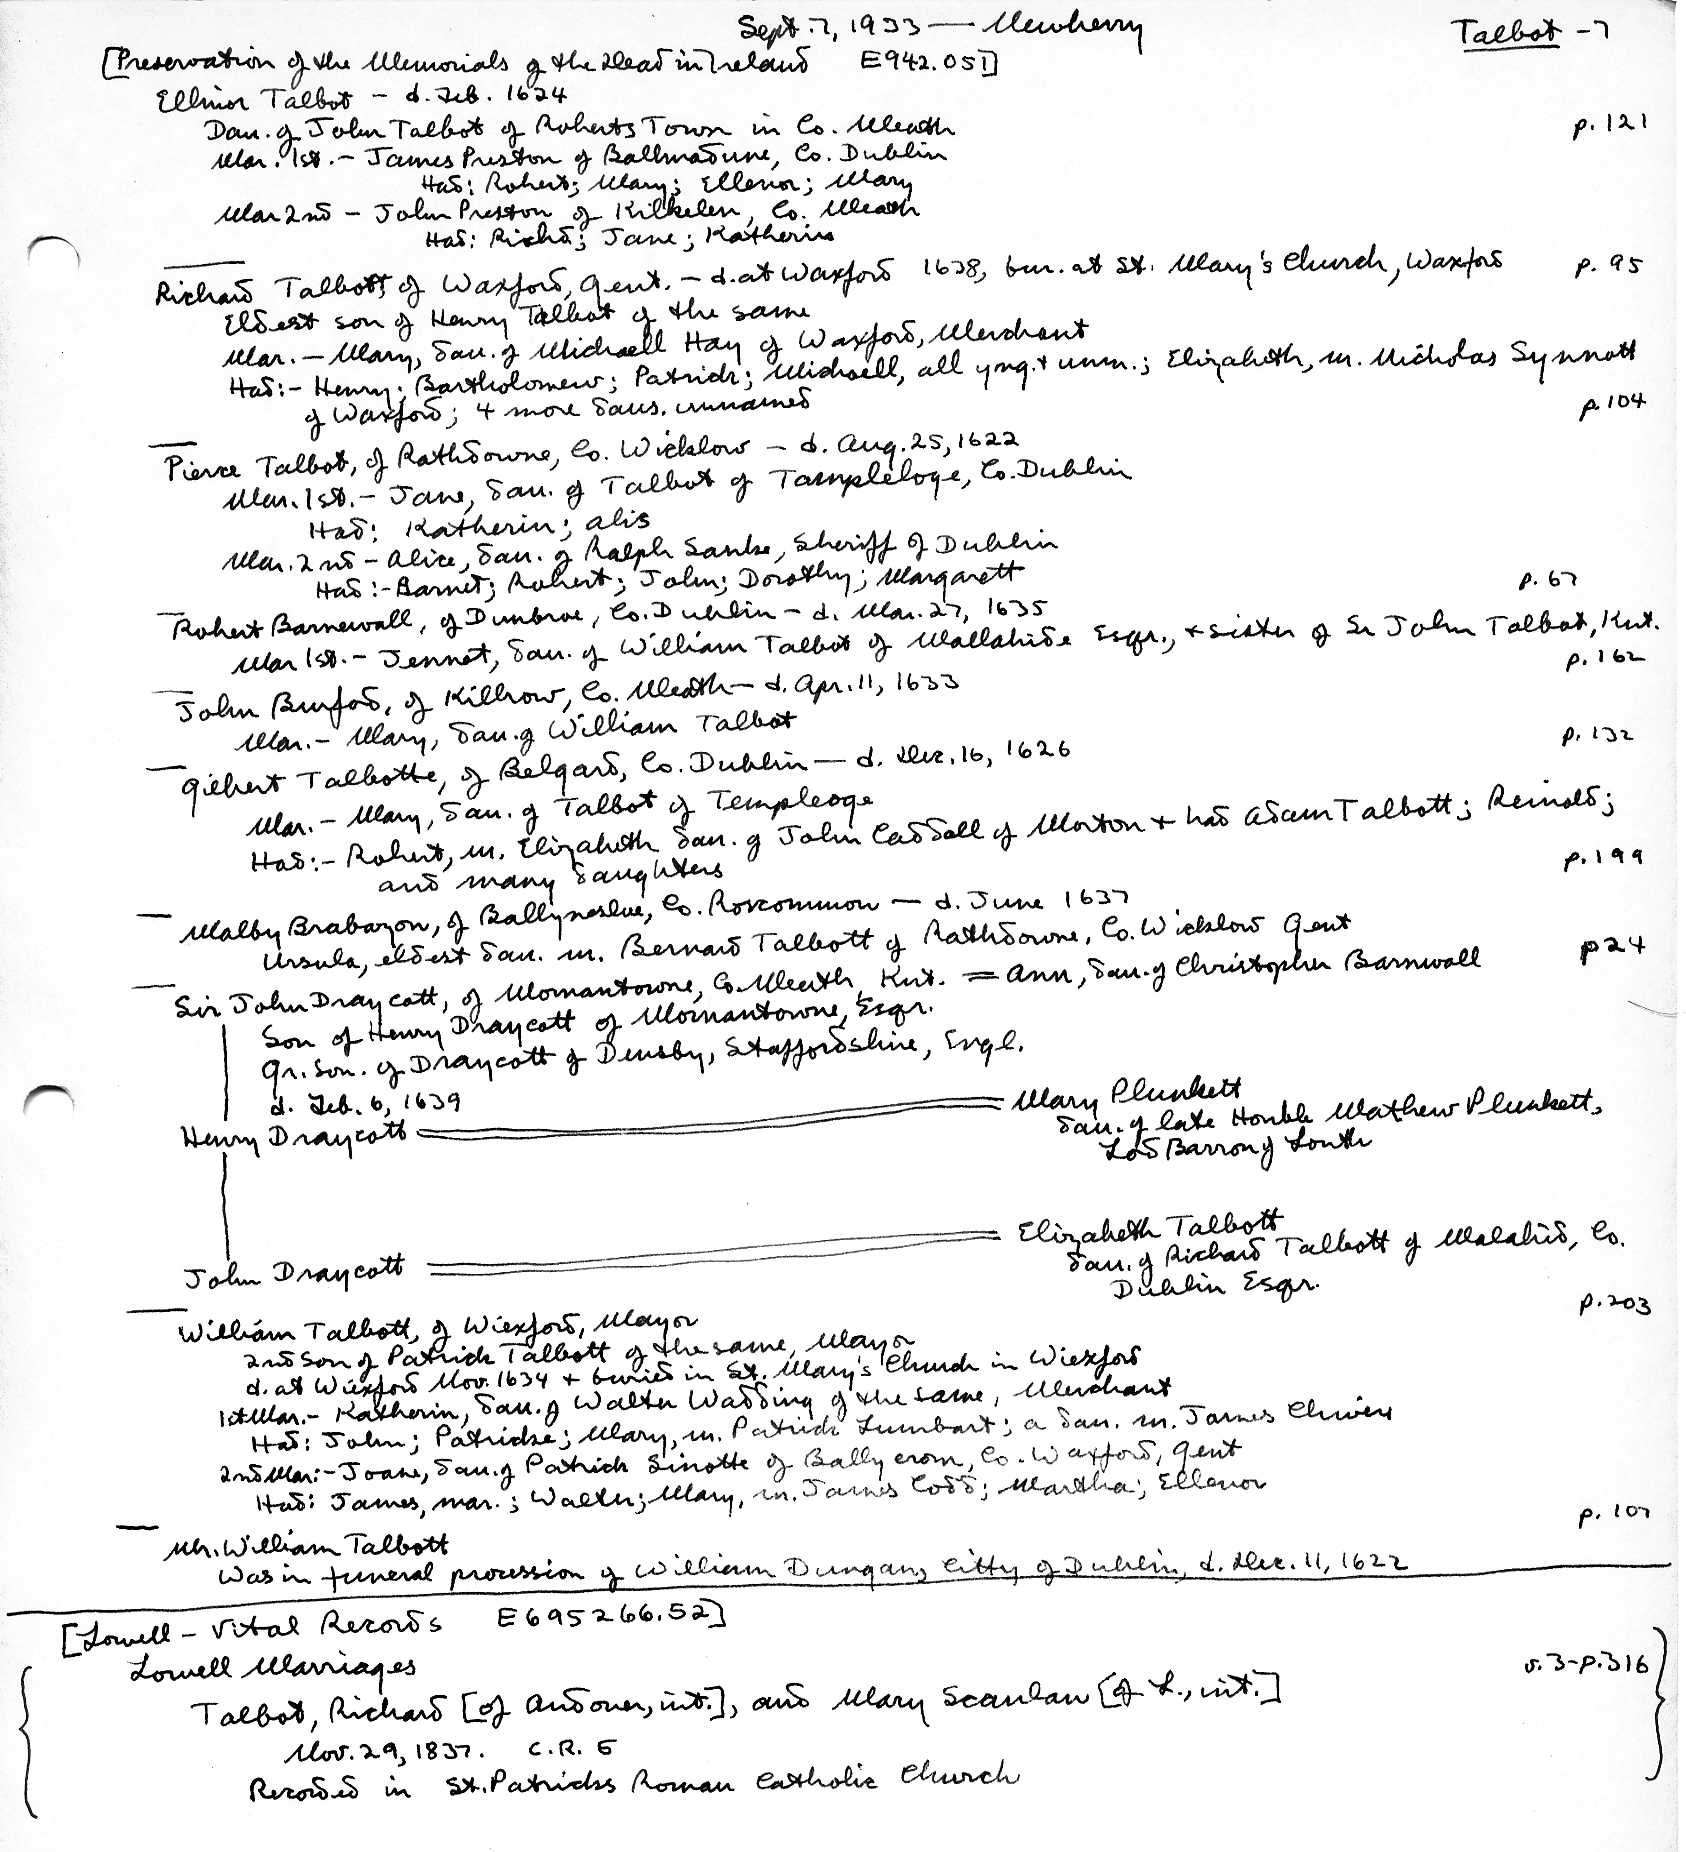 Sept. 7, 1933 — Newberry
Talbot - 7
[Preservation of the Memorials of the Dead in Ireland E942.051]
Ellinor Talbot - d. Feb. 1624
Dau. of John Talbot of Roberts Town in Co. Meath p. 121
Mar. 1st. - James Preston of Ballmadune, Co. Dublin
Had: Robert; Mary; Ellenor; Mary
Mar 2nd - John Preston of Kilkelen, Co. Meath
Had: Richd; Jane; Katherin
Richard Talbott, of Waxford, Gent. - d. at Waxford 1638, bur. at St. Mary's Church, Waxford p. 95
Eldest son of Henry Talbot of the same
Mar. - Mary, dau. of Michaell Hay of Waxford, Merchant
Had:- Henry; Bartholomew; Patrick; Michaell, all yng. + unm.; Elizabeth, m. Nicholas Synnott
of Waxford; 4 more daus. unnamed p. 104
Pierce Talbot, of Rathdowne, Co. Wicklow - d. Aug. 25, 1622
Mar. 1st. - Jane, dau. of Talbot of Tampleloge, Co. Dublin
Had: Katherin; Alis
Mar. 2nd - Alice, dau. of Ralph Sanke, Sheriff of Dublin
Had:- Barnet; Robert; John; Dorothy; Margarett p. 67
Robert Barnewall, of Dunbroe, Co. Dublin - d. Mar. 27, 1635
Mar 1st. - Jennet, dau. of William Talbot of Mallahide Esqr., + sister of Sr John Talbot, Knt.
p. 162
John Burford, of Killrow, Co. Meath - d. Apr. 11, 1633
Mar. - Mary, dau. of William Talbot
p. 132
Gilbert Talbotte, of Belgard, Co. Dublin - d. Dec. 16, 1626
Mar. - Mary, dau. of Talbot of Templeoge
Had:- Robert, m. Elizabeth dau. of John Caddall of Morton + had Adam Talbott; Reinold;
and many daughters p. 199
Malby Brabazon, of Ballynasloe, Co. Roscommon - d. June 1637
Ursula, eldest dau. m. Bernard Talbott of Rathdowne, Co. Wicklow Gent
p 24
Sir John Draycott, of Mornantowne, Co. Meath, Knt. = Ann, dau. of Christopher Barnwall
Son of Henry Draycott of Mornantowne, Esqr.
Gr. son. of Draycott of Densby, Staffordshire, Engl.
d. Feb. 6, 1639
Henry Draycott = Mary Plunkett
dau. of late Honble Mathew Plunkett,
Lod Barron of Louth
John Draycott = Elizabeth Talbott
dau. of Richard Talbott of Malahid, Co.
Dublin Esqr.
p. 203
William Talbott, of Wiexford, Mayor
2nd son of Patrick Talbott of the same, Mayor
d. at Wiexford Nov. 1634 + buried in St. Mary's Church in Wiexford
1st Mar. - Katherin, dau. of Walter Wadding of the same, Merchant
Had: John; Patricke; Mary, m. Patrick Lumbart; a dau. m. James Chivers
2nd Mar:- Joane, dau. of Patrick Sinotte of Ballycrom, Co. Waxford, Gent
Had: James, mar.; Walter; Mary, m. James Codd; Martha; Ellenor
p. 107
Mr. William Talbott
Was in funeral procession of William Dungan, Citty of Dublin, d. Dec. 11, 1622
[Lowell - Vital Records E695266.52]
Lowell Marriages v.3-p.316
Talbot, Richard [of Andover, int.], and Mary Scanlan [of L., int.]
Nov. 29, 1837. C.R. 5
Recorded in St. Patricks Roman Catholic Church